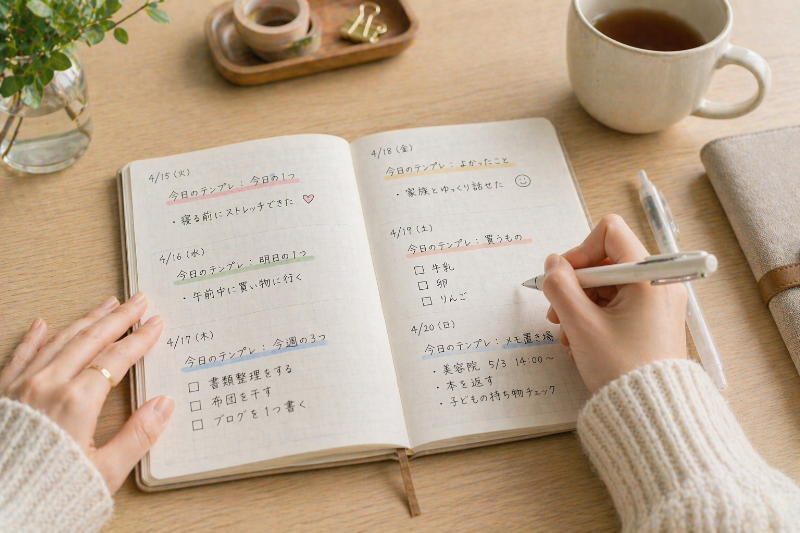 4/15(火)
今日のテンプレ：今日の1つ
・寝る前にストレッチできた♡
4/16(水)
今日のテンプレ：明日の1つ
・午前中に買い物に行く
4/17(木)
今日のテンプレ：今週の3つ
□ 書類整理をする
□ 布団を干す
□ ブログを1つ書く
4/18(金)
今日のテンプレ：よかったこと
・家族とゆっくり話せた
4/19(土)
今日のテンプレ：買うもの
□ 牛乳
□ 卵
□ りんご
4/20(日)
今日のテンプレ：メモ置き場
・美容院 5/3 14:00〜
・本を返す
・子どもの持ち物チェック